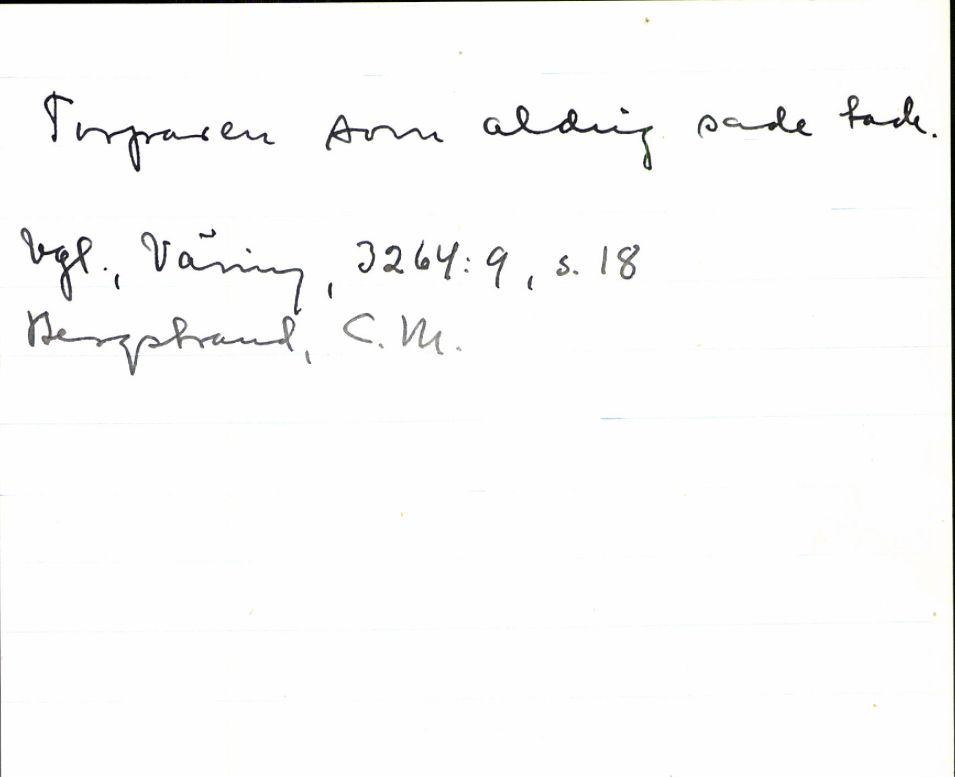 Torparen som aldrig sade tack.
Vgl., Väring, 3264:9, s. 18
Bergstrand, C.M.